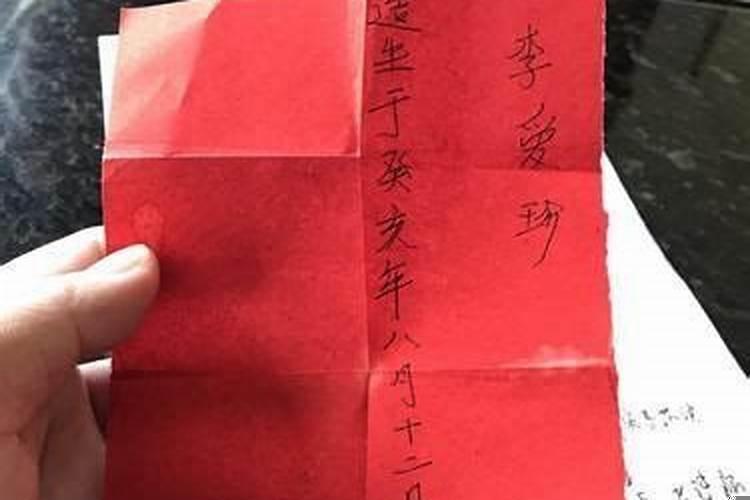 李爱珍
造生于癸亥年八月十二日